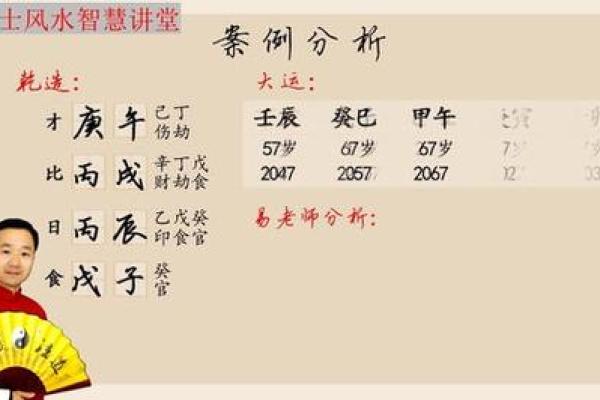 士风水智慧讲堂
案例分析
乾造:
才 庚 午 己丁
伤劫
比 丙 戌 辛丁戊
财劫食
日 丙 辰 乙戊癸
印食官
食 戊 子 癸
官
大运:
壬辰 癸巳 甲午
57岁 67岁 67岁
2047 2057 2067
易老师分析: